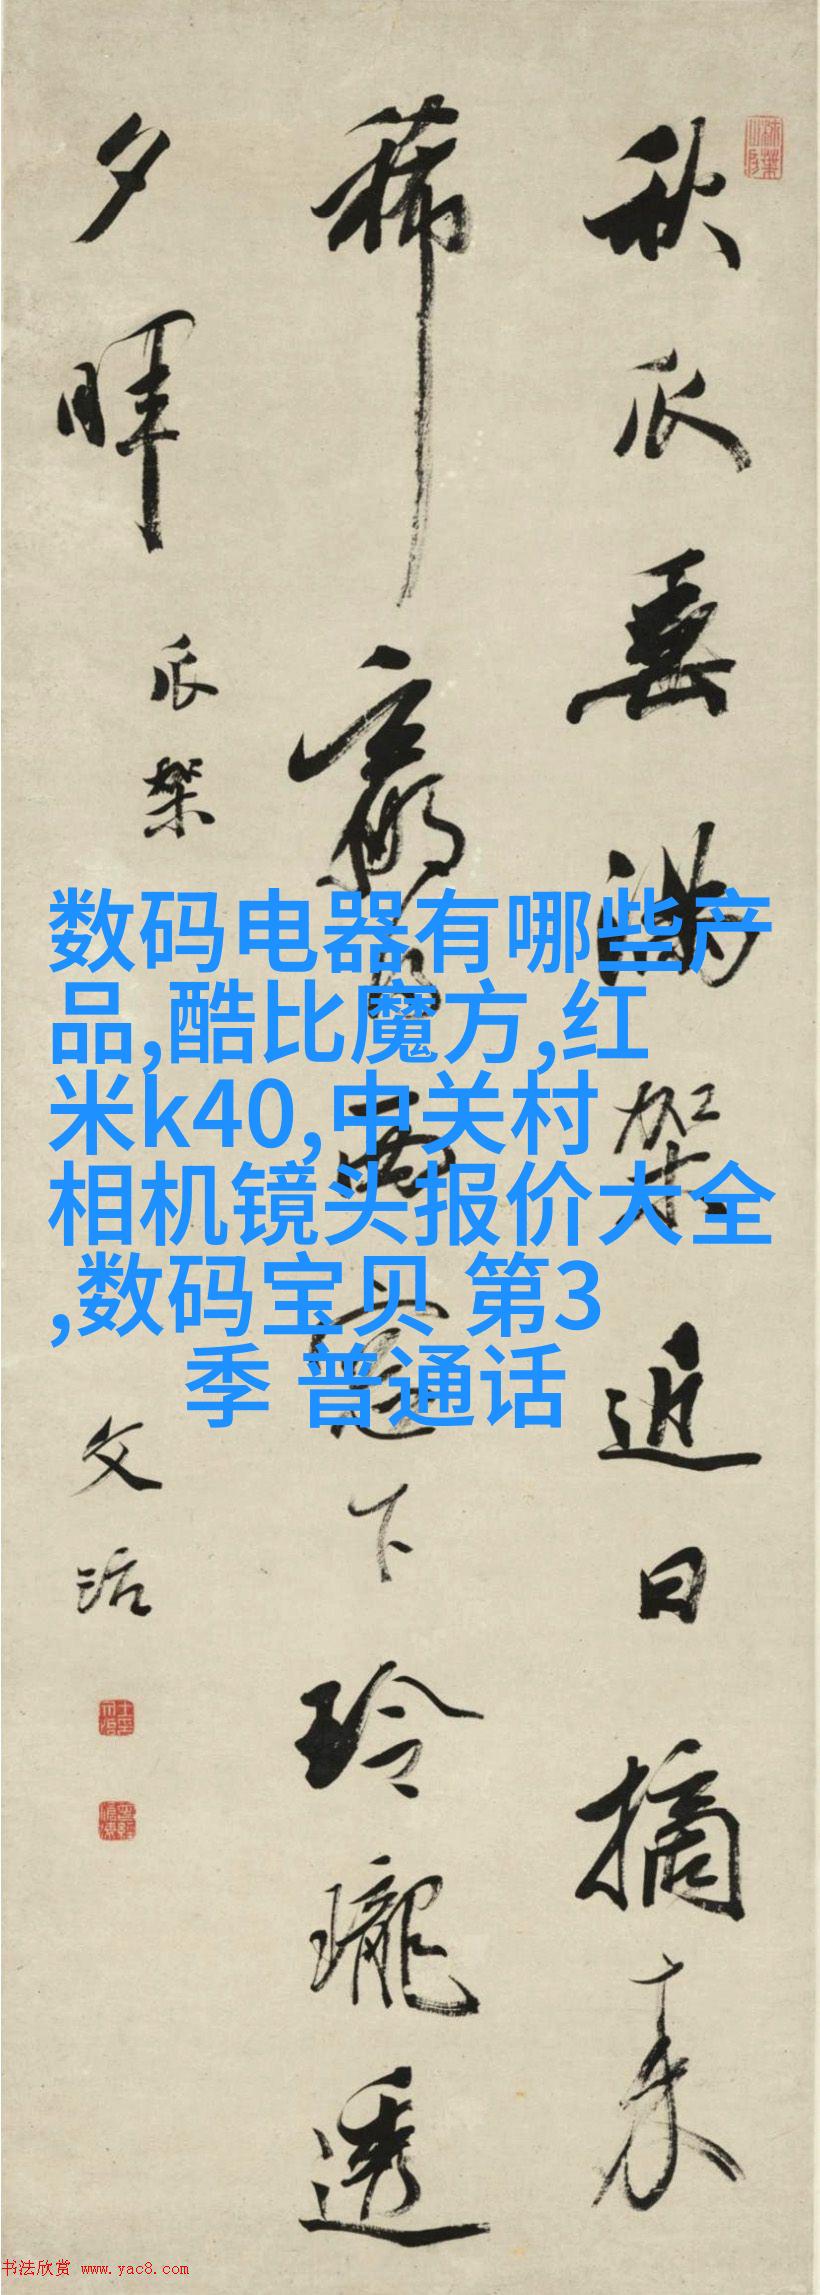 秋瓜垂满架近日摘来
稀
下玲瓏透
夕暉
瓜架
文治
数码电器有哪些产
品,酷比魔方,红
米k40,中关村
相机镜头报价大全
,数码宝贝 第3
季 普通话
书法欣赏 www.yac8.com